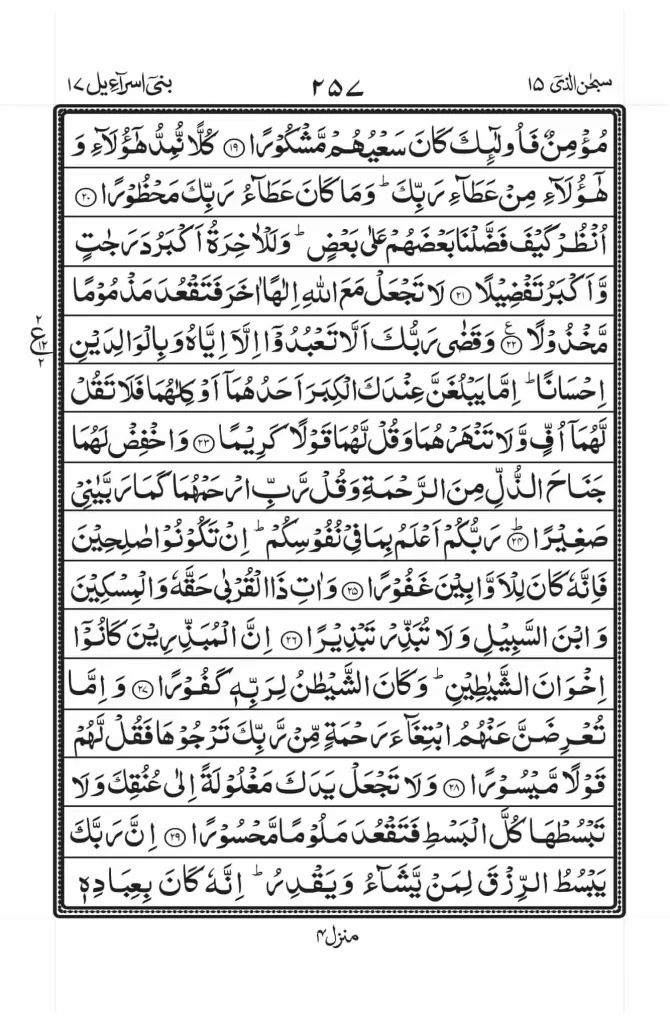 سبحٰن الذیۤ ۱۵ ۲۵۷ بنیۤ اسرآءیل ۱۷
مُؤْمِنٌ فَاُولٰٓئِكَ كَانَ سَعْيُهُمْ مَّشْكُوْرًا ﴿۱۹﴾ كُلًّا نُّمِدُّ هٰٓؤُلَآءِ وَ
هٰٓؤُلَآءِ مِنْ عَطَآءِ رَبِّكَ ؕ وَمَا كَانَ عَطَآءُ رَبِّكَ مَحْظُوْرًا ﴿۲۰﴾
اُنْظُرْ كَيْفَ فَضَّلْنَا بَعْضَهُمْ عَلٰى بَعْضٍ ؕ وَلَلْاٰخِرَةُ اَكْبَرُ دَرَجٰتٍ
وَّاَكْبَرُ تَفْضِيْلًا ﴿۲۱﴾ لَا تَجْعَلْ مَعَ اللّٰهِ اِلٰهًا اٰخَرَ فَتَقْعُدَ مَذْمُوْمًا
مَّخْذُوْلًا ﴿۲۲﴾ ع وَقَضٰى رَبُّكَ اَلَّا تَعْبُدُوْۤا اِلَّاۤ اِيَّاهُ وَبِالْوَالِدَيْنِ
۲ ع ۱۲ ۲
اِحْسَانًا ؕ اِمَّا يَبْلُغَنَّ عِنْدَكَ الْكِبَرَ اَحَدُهُمَاۤ اَوْ كِلٰهُمَا فَلَا تَقُلْ
لَّهُمَاۤ اُفٍّ وَّلَا تَنْهَرْهُمَا وَقُلْ لَّهُمَا قَوْلًا كَرِيْمًا ﴿۲۳﴾ وَاخْفِضْ لَهُمَا
جَنَاحَ الذُّلِّ مِنَ الرَّحْمَةِ وَقُلْ رَّبِّ ارْحَمْهُمَا كَمَا رَبَّيٰنِيْ
صَغِيْرًا ﴿۲۴﴾ؕ رَبُّكُمْ اَعْلَمُ بِمَا فِيْ نُفُوْسِكُمْ ؕ اِنْ تَكُوْنُوْا صٰلِحِيْنَ
فَاِنَّهٗ كَانَ لِلْاَوَّابِيْنَ غَفُوْرًا ﴿۲۵﴾ وَاٰتِ ذَا الْقُرْبٰى حَقَّهٗ وَالْمِسْكِيْنَ
وَابْنَ السَّبِيْلِ وَلَا تُبَذِّرْ تَبْذِيْرًا ﴿۲۶﴾ اِنَّ الْمُبَذِّرِيْنَ كَانُوْۤا
اِخْوَانَ الشَّيٰطِيْنِ ؕ وَكَانَ الشَّيْطٰنُ لِرَبِّهٖ كَفُوْرًا ﴿۲۷﴾ وَاِمَّا
تُعْرِضَنَّ عَنْهُمُ ابْتِغَآءَ رَحْمَةٍ مِّنْ رَّبِّكَ تَرْجُوْهَا فَقُلْ لَّهُمْ
قَوْلًا مَّيْسُوْرًا ﴿۲۸﴾ وَلَا تَجْعَلْ يَدَكَ مَغْلُوْلَةً اِلٰى عُنُقِكَ وَلَا
تَبْسُطْهَا كُلَّ الْبَسْطِ فَتَقْعُدَ مَلُوْمًا مَّحْسُوْرًا ﴿۲۹﴾ اِنَّ رَبَّكَ
يَبْسُطُ الرِّزْقَ لِمَنْ يَّشَآءُ وَيَقْدِرُ ؕ اِنَّهٗ كَانَ بِعِبَادِهٖ
منزل ۴